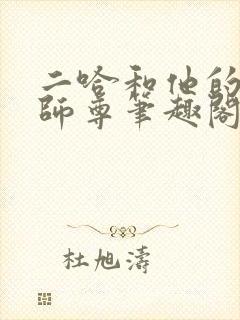 二哈和他的
師尊笔趣閣
杜旭濤